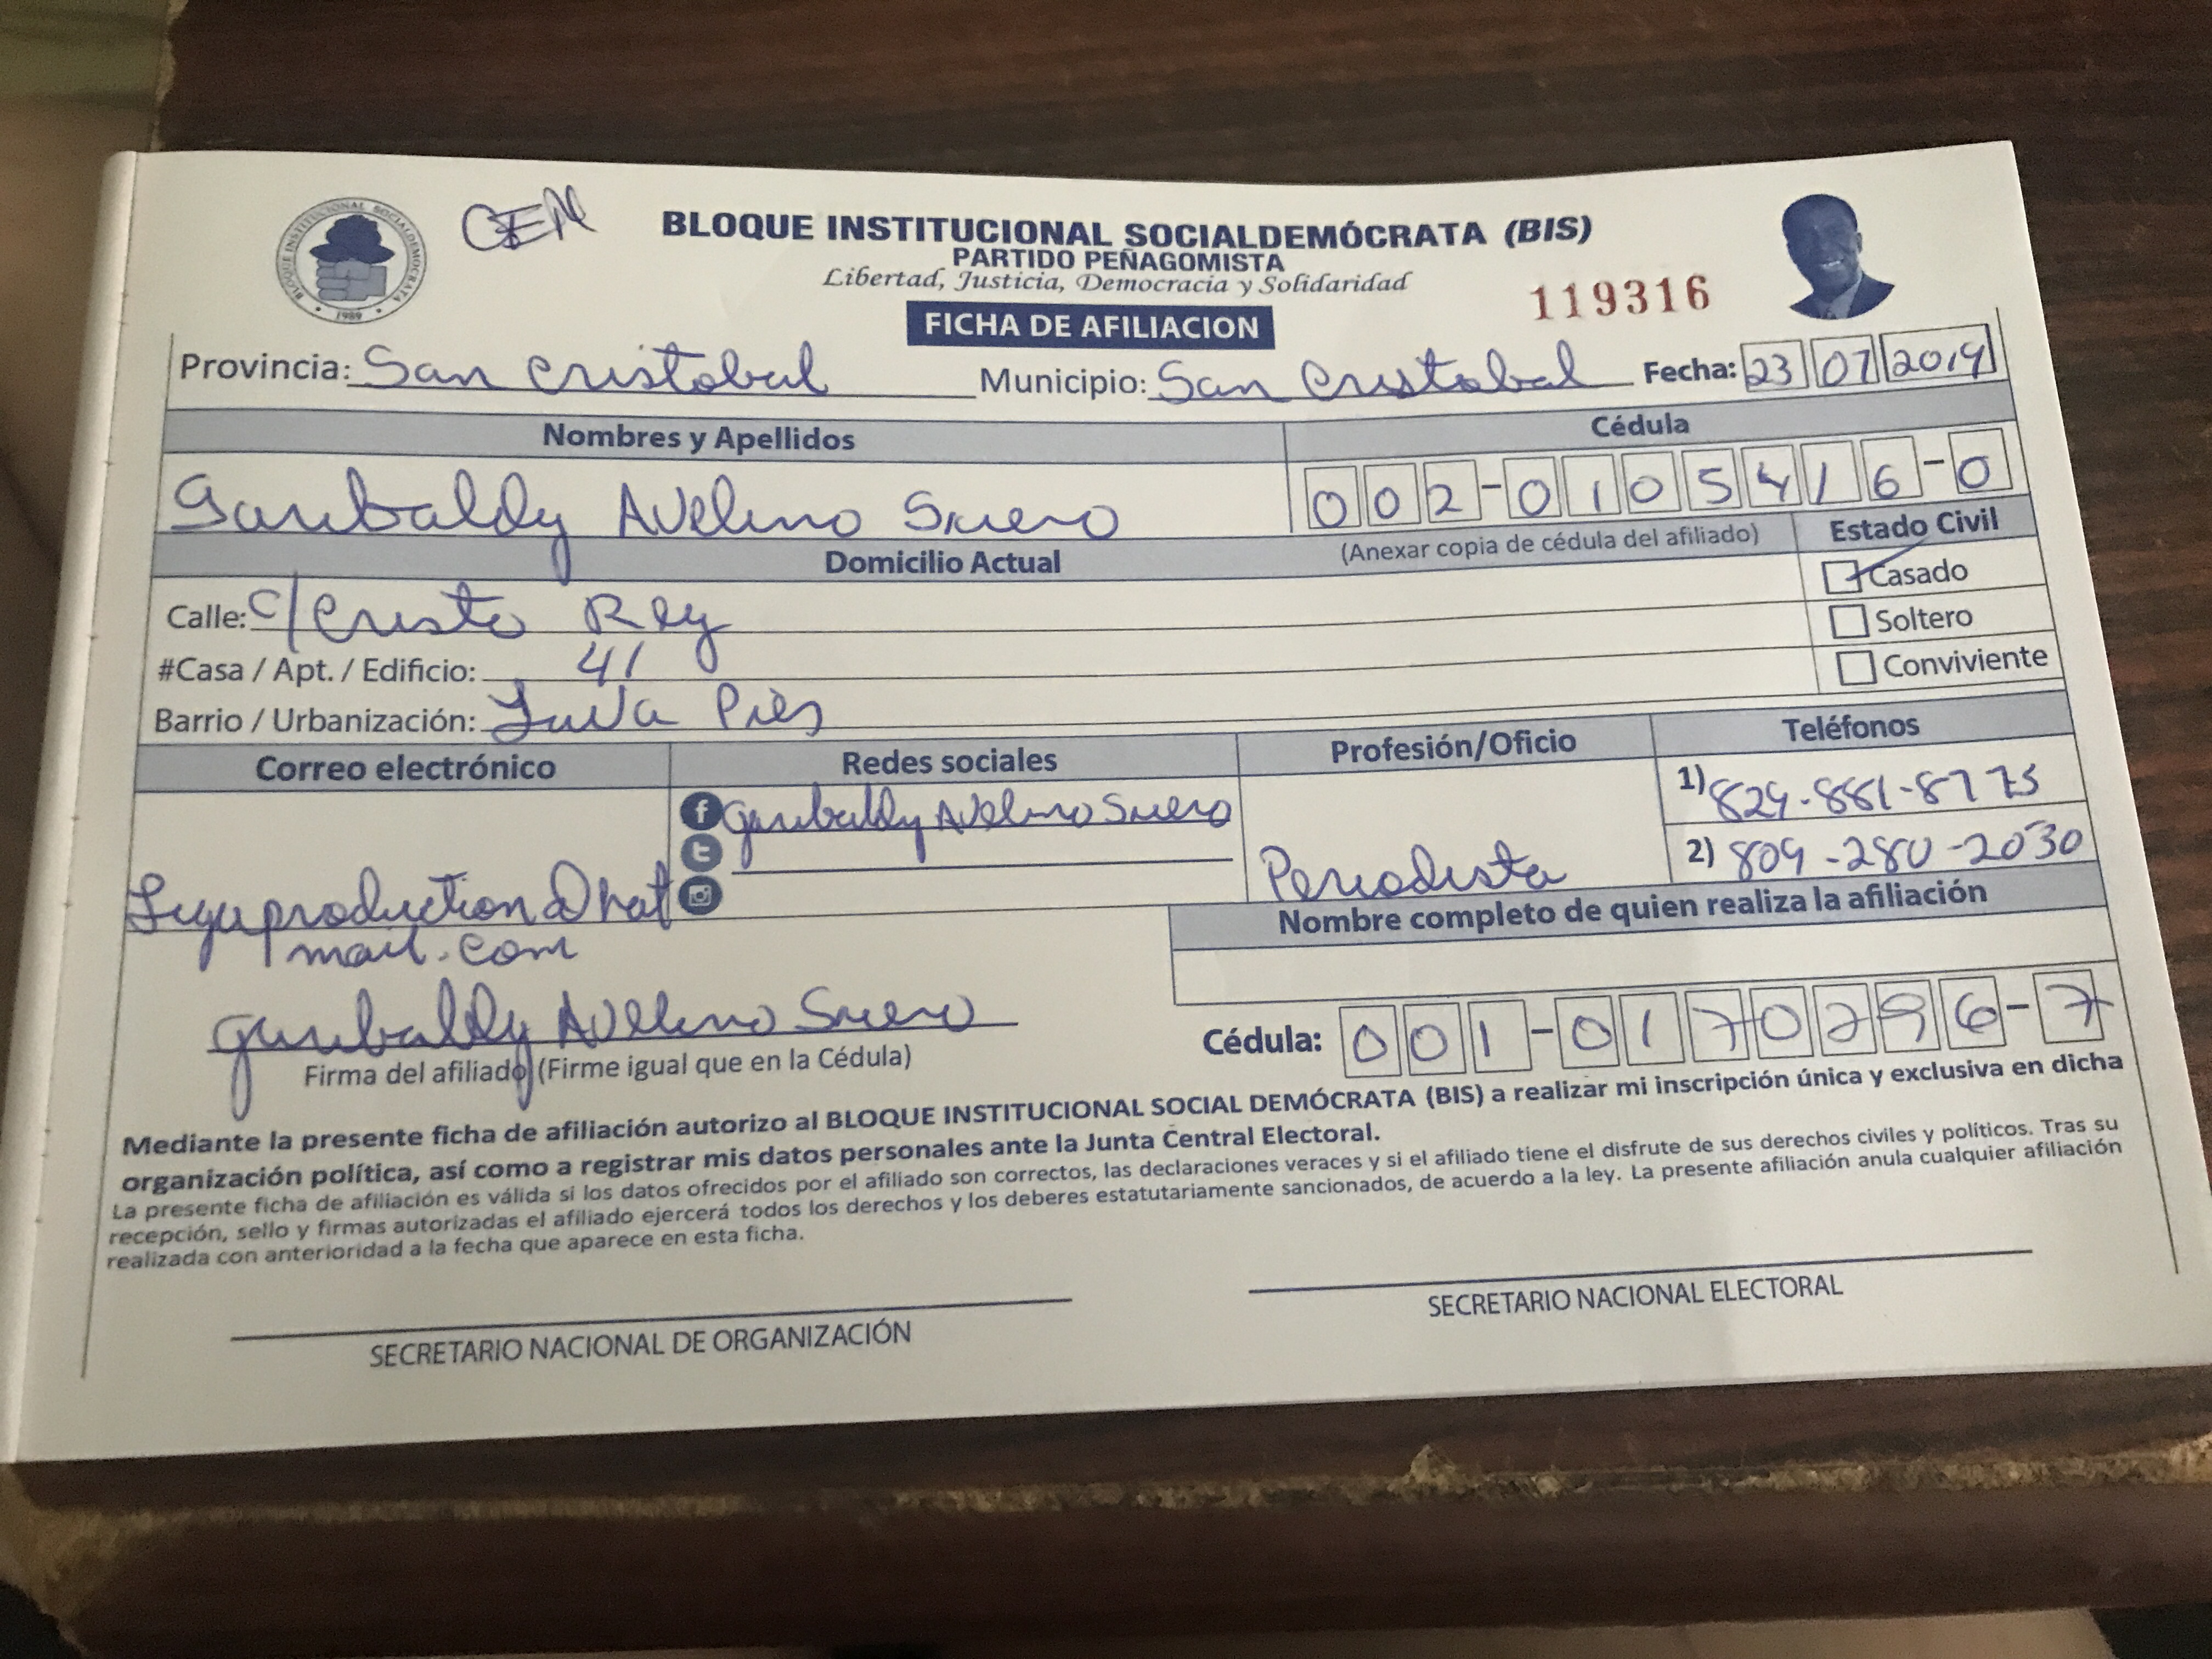 BLOQUE INSTITUCIONAL SOCIALDEMOCRATA
1989
CEN
BLOQUE INSTITUCIONAL SOCIALDEMÓCRATA (BIS)
PARTIDO PEÑAGOMISTA
Libertad, Justicia, Democracia y Solidaridad
119316
FICHA DE AFILIACION
Provincia: San Cristobal Municipio: San Cristobal Fecha: 23 07 2019
Nombres y Apellidos Cédula
Garibaldy Avelino Suero 002-0105416-0
Domicilio Actual (Anexar copia de cédula del afiliado) Estado Civil
Calle: c/ Cristo Rey Casado
#Casa / Apt. / Edificio: 41 Soltero
Barrio / Urbanización: Conviviente
Correo electrónico Redes sociales Profesión/Oficio Teléfonos
garibaldy Avelino Suero 1) 829-881-8775
Periodista 2) 809-280-2030
mail.com
Nombre completo de quien realiza la afiliación
garibaldy Avelino Suero
Cédula: 001-0170296-7
Firma del afiliado (Firme igual que en la Cédula)
Mediante la presente ficha de afiliación autorizo al BLOQUE INSTITUCIONAL SOCIAL DEMÓCRATA (BIS) a realizar mi inscripción única y exclusiva en dicha
organización política, así como a registrar mis datos personales ante la Junta Central Electoral.
La presente ficha de afiliación es válida si los datos ofrecidos por el afiliado son correctos, las declaraciones veraces y si el afiliado tiene el disfrute de sus derechos civiles y políticos. Tras su
recepción, sello y firmas autorizadas el afiliado ejercerá todos los derechos y los deberes estatutariamente sancionados, de acuerdo a la ley. La presente afiliación anula cualquier afiliación
realizada con anterioridad a la fecha que aparece en esta ficha.
SECRETARIO NACIONAL DE ORGANIZACIÓN SECRETARIO NACIONAL ELECTORAL